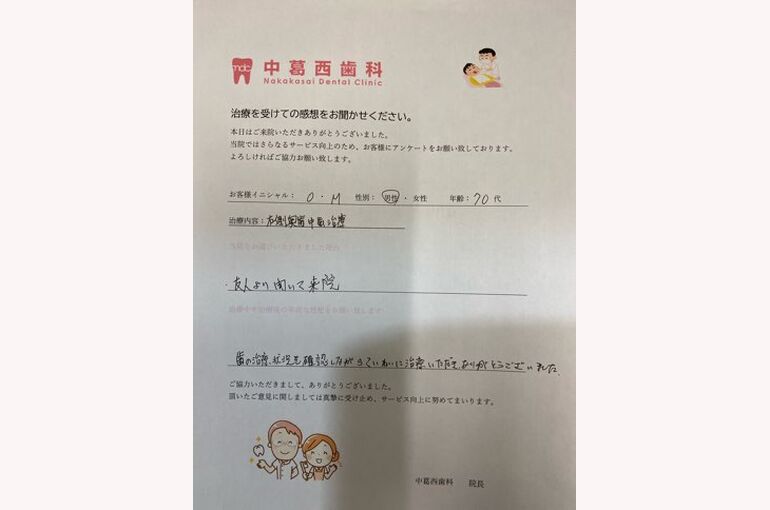 中葛西歯科
Nakakasai Dental Clinic
治療を受けての感想をお聞かせください。
本日はご来院いただきありがとうございました。
当院ではさらなるサービス向上のため、お客様にアンケートをお願い致しております。
よろしければご協力お願い致します。
お客様イニシャル： O ・ M 性別： 男性 ・ 女性 年齢： 70 代
治療内容：右側奥歯中電治療
当院をお選びいただきました理由
・友人より聞いて来院
治療中や治療後の率直な感想をお願い致します
歯の治療、状況を確認しながらていねいに治療いただき、ありがとうございました。
ご協力いただきまして、ありがとうございました。
頂いたご意見に関しましては真摯に受け止め、サービス向上に努めてまいります。
中葛西歯科 院長